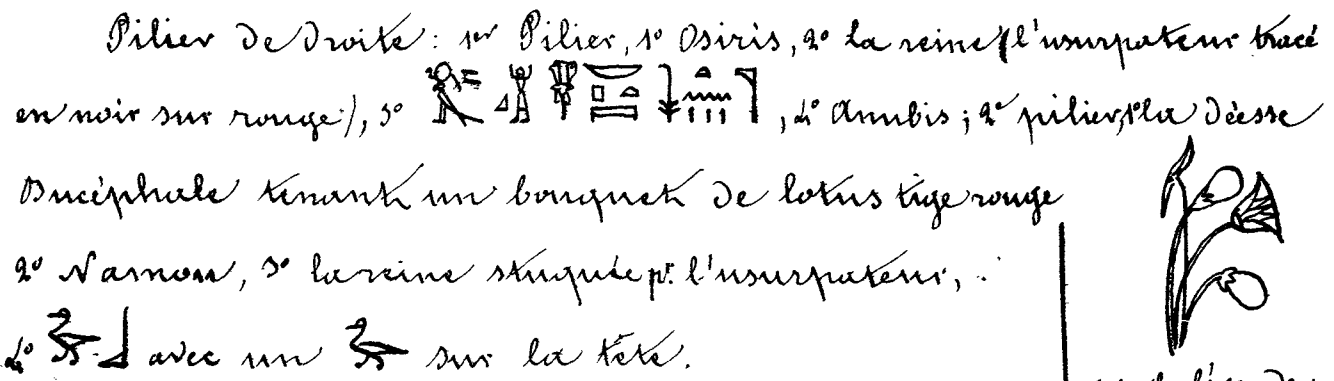 Pilier de Droite : 1er Pilier, 1º Osiris, 2º la reine (l'usurpateur tracé
en noir sur rouge), 3º , 4º Anubis ; 2º pilier, 1º la Déesse
Bucéphale tenant un bouquet de lotus tige rouge
2º Namon, 3º la reine stuquée pr. l'usurpateur,
4º avec un sur la tête.